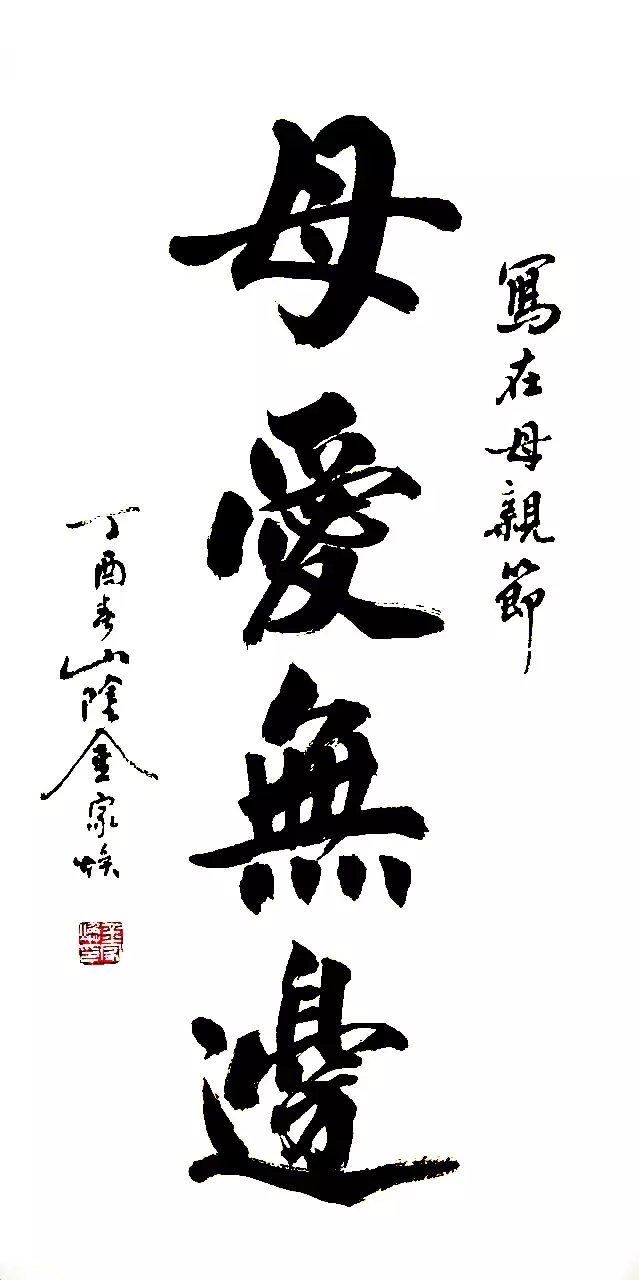 寫在母親節
母愛無邊
丁酉春山陰金家焕